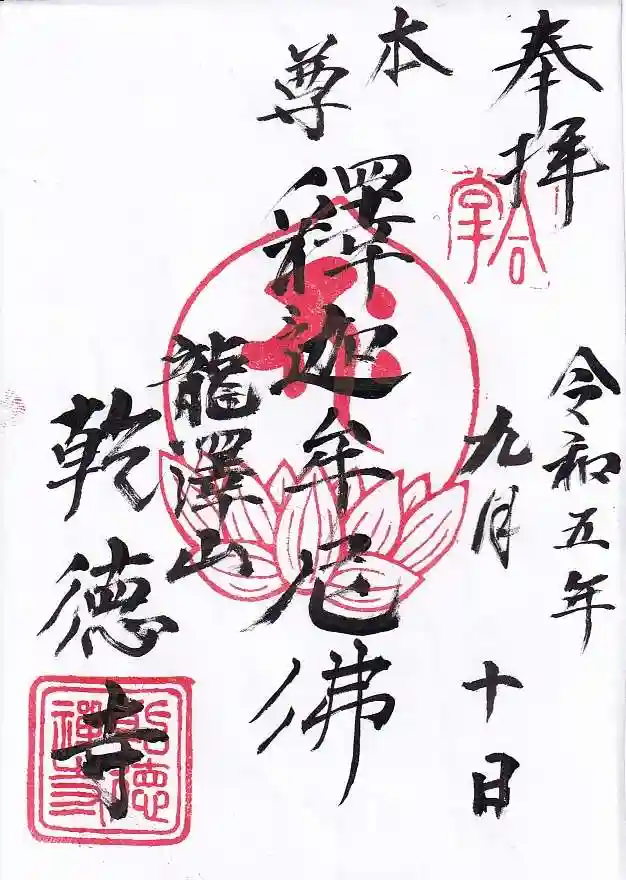 奉拝
合掌
令和五年
九月十日
本尊
釋迦牟尼佛
龍澤山
乾德寺